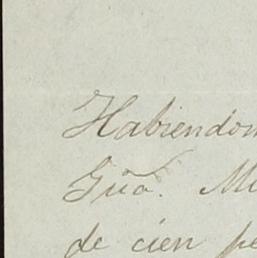 Habiendom
Gũa. Mi
de cien pe